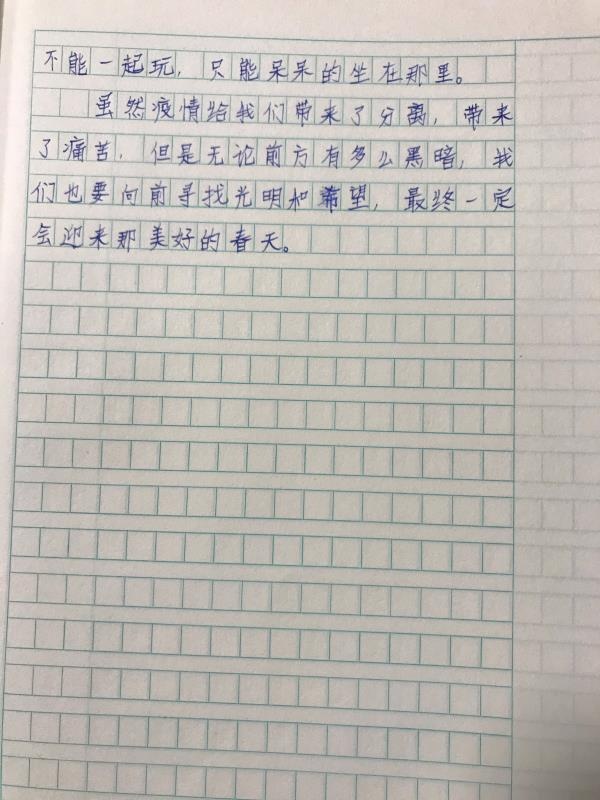 不能一起玩，只能呆呆的坐在那里。
虽然疫情给我们带来了分离，带来
了痛苦，但是无论前方有多么黑暗，我
们也要向前寻找光明和希望，最终一定
会迎来那美好的春天。